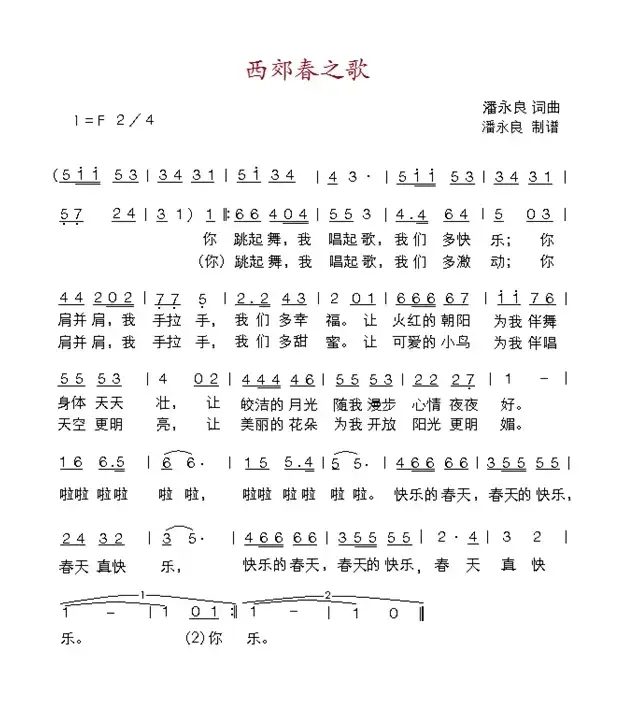 西郊春之歌
潘永良 词曲
1=F 2/4
潘永良 制谱
(5 i i 5 3 | 3 4 3 1 | 5 i 3 4 | 4 3 · | 5 i i 5 3 | 3 4 3 1 |
5 7 2 4 | 3 1) 1 ‖: 6 6 4 0 4 | 5 5 3 | 4. 4 6 4 | 5 0 3 |
你 跳起舞，我 唱起歌，我们 多快 乐；你
(你) 跳起舞，我 唱起歌，我们 多激 动；你
4 4 2 0 2 | 7 7 5 | 2. 2 4 3 | 2 0 1 | 6 6 6 6 7 | i i 7 6 |
肩并肩，我 手拉 手，我们 多幸 福。让 火红的 朝阳 为我 伴舞
肩并肩，我 手拉 手，我们 多甜 蜜。让 可爱的 小鸟 为我 伴唱
5 5 5 3 | 4 0 2 | 4 4 4 4 6 | 5 5 5 3 | 2 2 2 7 | 1 - |
身体 天天 壮，让 皎洁的 月光 随我 漫步 心情 夜夜 好。
天空 更明 亮，让 美丽的 花朵 为我 开放 阳光 更明 媚。
1 6 6. 5 | 6 6 · | 1 5 5. 4 | 5 5 · | 4 6 6 6 6 | 3 5 5 5 5 |
啦啦 啦啦 啦 啦， 啦啦 啦啦 啦 啦。 快乐的 春天，春天的 快乐，
2 4 3 2 | 3 5 · | 4 6 6 6 6 | 3 5 5 5 5 | 2 · 4 | 3 2 |
春天 真快 乐， 快乐的 春天，春天的 快乐，春 天 真 快
1 2
1 - | 1 0 1 :‖ 1 - | 1 0 ‖
乐。 (2)你 乐。